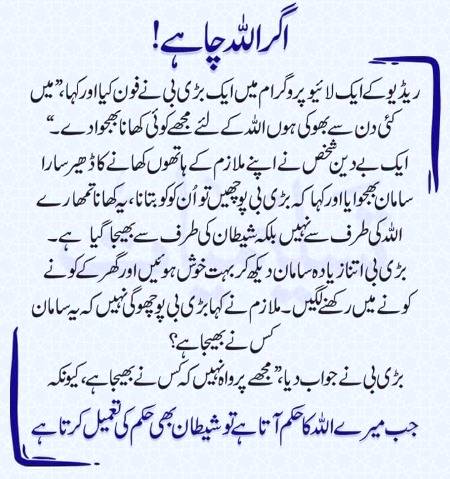 اگر اللہ چاہے!
ریڈیو کے ایک لائیو پروگرام میں ایک بڑی بی نے فون کیا اور کہا، ”میں
کئی دن سے بھوکی ہوں اللہ کے لئے مجھے کوئی کھانا بھجوا دے۔“
ایک بے دین شخص نے اپنے ملازم کے ہاتھوں کھانے کا ڈھیر سارا
سامان بھجوایا اور کہا کہ بڑی بی پوچھیں تو اُن کو کو بتانا، یہ کھانا تمھارے
اللہ کی طرف سے نہیں بلکہ شیطان کی طرف سے بھیجا گیا ہے۔
بڑی بی اتنا زیادہ سامان دیکھ کر بہت خوش ہوئیں اور گھر کے کونے
کونے میں رکھنے لگیں۔ ملازم نے کہا بڑی بی پوچھوگی نہیں کہ یہ سامان
کس نے بھیجا ہے؟
بڑی بی نے جواب دیا، ”مجھے پرواہ نہیں کہ کس نے بھیجا ہے، کیونکہ
جب میرے اللہ کا حکم آتا ہے تو شیطان بھی حکم کی تعمیل کرتا ہے